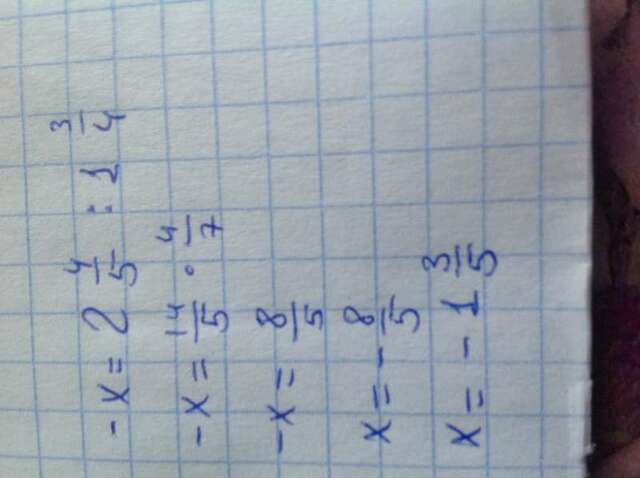 -x = 2 4/5 : 1 3/4
-x = 14/5 · 4/7
-x = 8/5
x = - 8/5
x = - 1 3/5